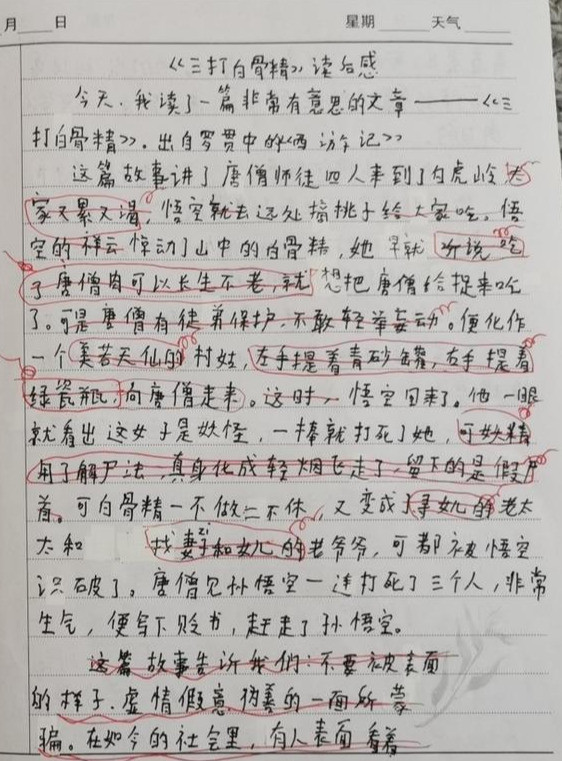 月 日 星期 天气
《三打白骨精》读后感
今天,我读了一篇非常有意思的文章——《三
打白骨精》。出自罗贯中的《西游记》
这篇故事讲了唐僧师徒四人来到了白虎岭,大
家又累又渴,悟空就去远处摘桃子给大家吃。悟
空的祥云惊动了山中的白骨精,她早就听说吃
了唐僧肉可以长生不老,就想把唐僧给捉来吃
了。可是唐僧有徒弟保护,不敢轻举妄动。便化作
一个美若天仙的村姑,左手提着青砂罐,右手提着
绿瓷瓶,向唐僧走来。这时,悟空回来了。他一眼
就看出这女子是妖怪,一棒就打死了她,可妖精
用了解尸法,真身化成轻烟飞走了,留下的是假尸
首。可白骨精一不做二不休,又变成了寻女儿的老太
太和 找妻子zi和女儿的老爷爷,可都被悟空
识破了。唐僧见孙悟空一连打死了三个人,非常
生气,便写下贬书,赶走了孙悟空。
这篇故事告诉我们:不要被表面
的样子.虚情假意.伪善的一面所蒙
骗。在如今的社会里,有人表面看着